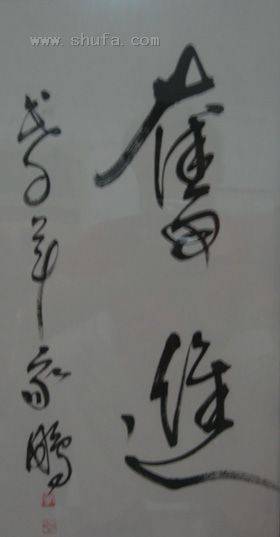 www.shufa.com
奮進
戊子年家鵬